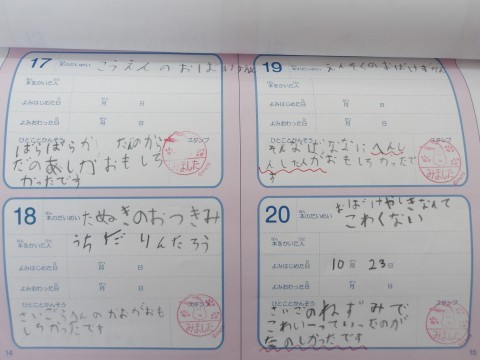 17
本のだいめい
こうえんのおばけずかん
本をかいた人
よみはじめた日 月 日
よみおわった日 月 日
ひとことかんそう
スタンプ
ばらばらか
だのあしがおもしろ
かったです
みました
18
本のだいめい
たぬきのおつきみ
本をかいた人
うちだ りんたろう
よみはじめた日 月 日
よみおわった日 月 日
ひとことかんそう
スタンプ
さいごうくんのかおがおも
しろかったです
みました
14
19
本のだいめい
えんそくのおばけずかん
本をかいた人
よみはじめた日 月 日
よみおわった日 月 日
ひとことかんそう
スタンプ
そんなばななにへんし
んしたんがおもしろかったで
す
みました
20
本のだいめい
おばけやしきなんて
こわくない
本をかいた人
よみはじめた日 10月 23日
よみおわった日 月 日
ひとことかんそう
スタンプ
さいごのねずみで
こわいーっていってたのが
たのしかったです
みました
15